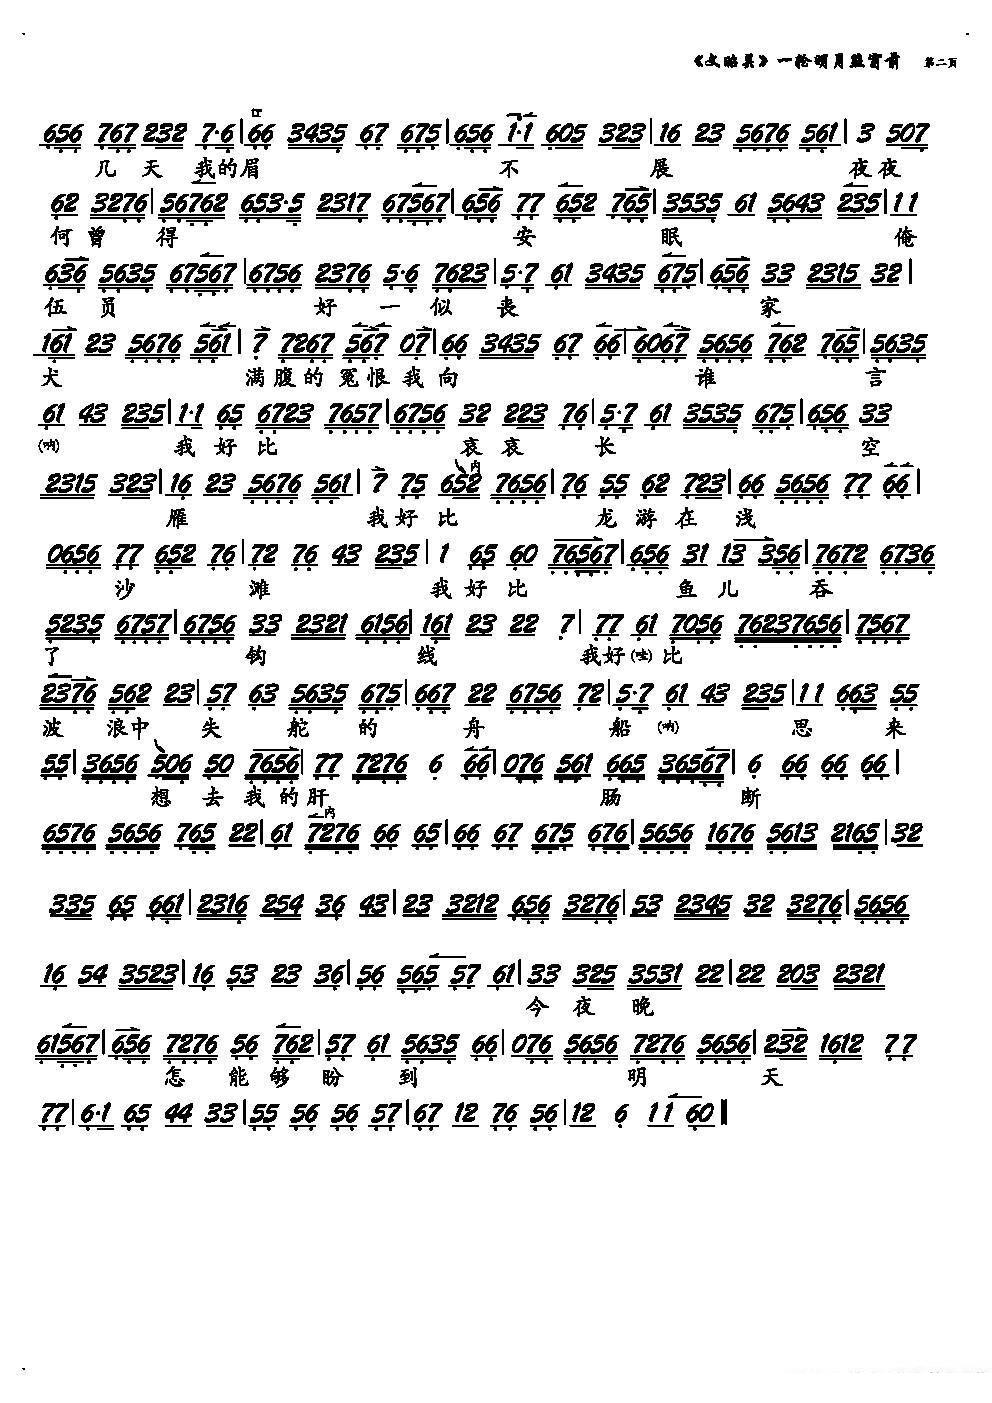 《文昭关》一轮明月照窗前 第二页
656 767 232 7·6|66 3435 67 675|656 1·1 605 323|16 23 5676 561|3 507
几 天 我的眉 不 展 夜夜
62 3276|56762 653·5 2317 67567|656 77 652 765|3535 61 5643 235|11
何曾 得 安 眠 俺
636 5635 67567|6756 2376 5·6 7623|5·7 61 3435 675|656 33 2315 32|
伍员 好一似丧 家
161 23 5676 561|7 7267 567 07|66 3435 67 66|6067 5656 762 765|5635
犬 满腹的冤恨我向 谁 言
61 43 235|1·1 65 6723 7657|6756 32 223 76|5·7 61 3535 675|656 33
(呐) 我好比 哀哀 长 空
2315 323|16 23 5676 561|7 75 652 7656|76 55 62 723|66 5656 77 66|
内
雁 我好比 龙游在浅
0656 77 652 76|72 76 43 235|1 65 60 76567|656 31 13 356|7672 6736
沙 滩 我好比 鱼儿 吞
5235 6757|6756 33 2321 6156|161 23 22 7|77 61 7056 76237656|7567
了 钩 线 我好(哇)比
2376 562 23|57 63 5635 675|667 22 6756 72|5·7 61 43 235|11 663 55
波 浪中 失 舵 的 舟 船(呐) 思 来
55|3656 506 50 7656|77 7276 6 66|076 561 665 36567|6 66 66 66|
想去我的肝 肠 断
内
6576 5656 765 22|61 7276 66 65|66 67 675 676|5656 1676 5613 2165|32
335 65 661|2316 254 36 43|23 3212 656 3276|53 2345 32 3276|5656
16 54 3523|16 53 23 36|56 565 57 61|33 325 3531 22|22 203 2321
今夜晚
61567|656 7276 56 762|57 61 5635 66|076 5656 7276 5656|232 1612 77
怎 能够盼 到 明 天
77|6·1 65 44 33|55 56 56 57|67 12 76 56|12 6 11 60‖